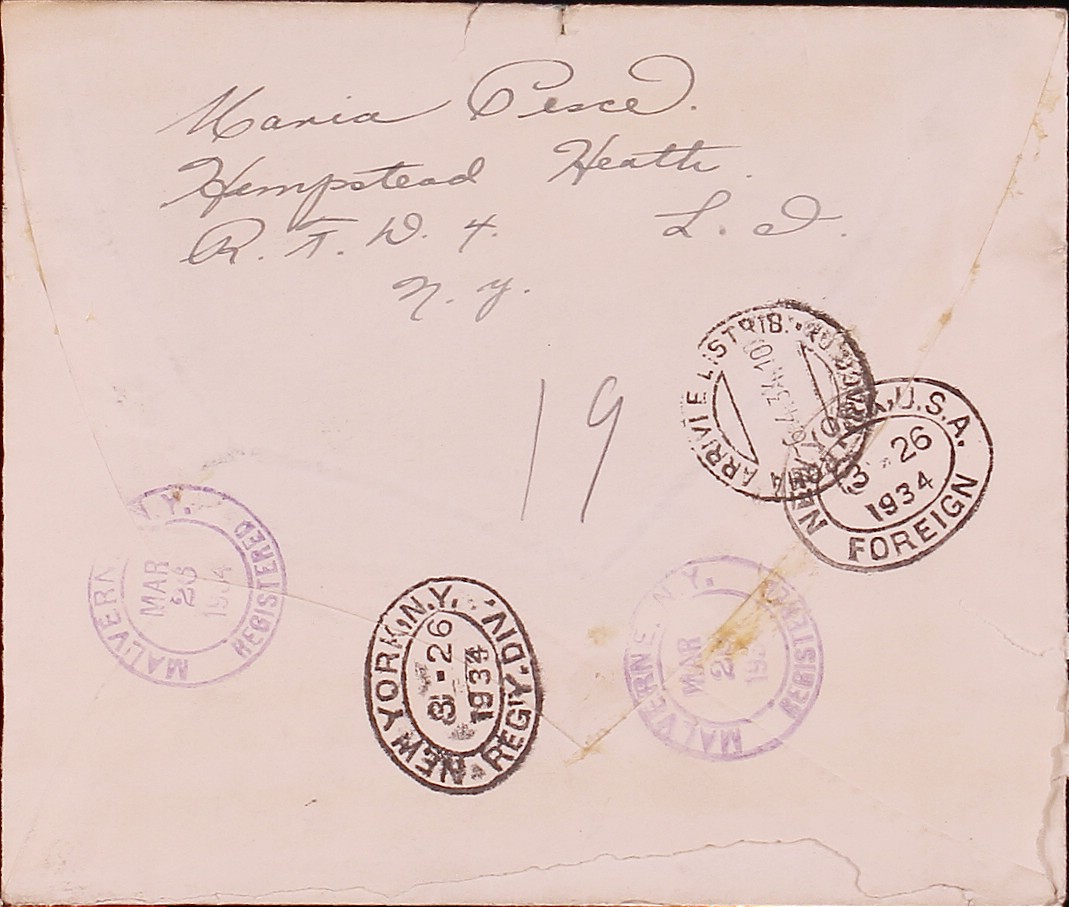 Maria Pesce.
Hempstead Heath.
R. F. D. 4. L. I.
N. Y.
19
ARRIVI E DISTRIB.
6.4.34.10
NEW YORK, U.S.A.
3 - 26
1934
FOREIGN
MALVERNE, N.Y.
MAR
26
1934
REGISTERED
NEW YORK, N.Y.
3 - 26
1934
REG'Y. DIV.
MALVERNE, N.Y.
MAR
26
193
REGISTERED